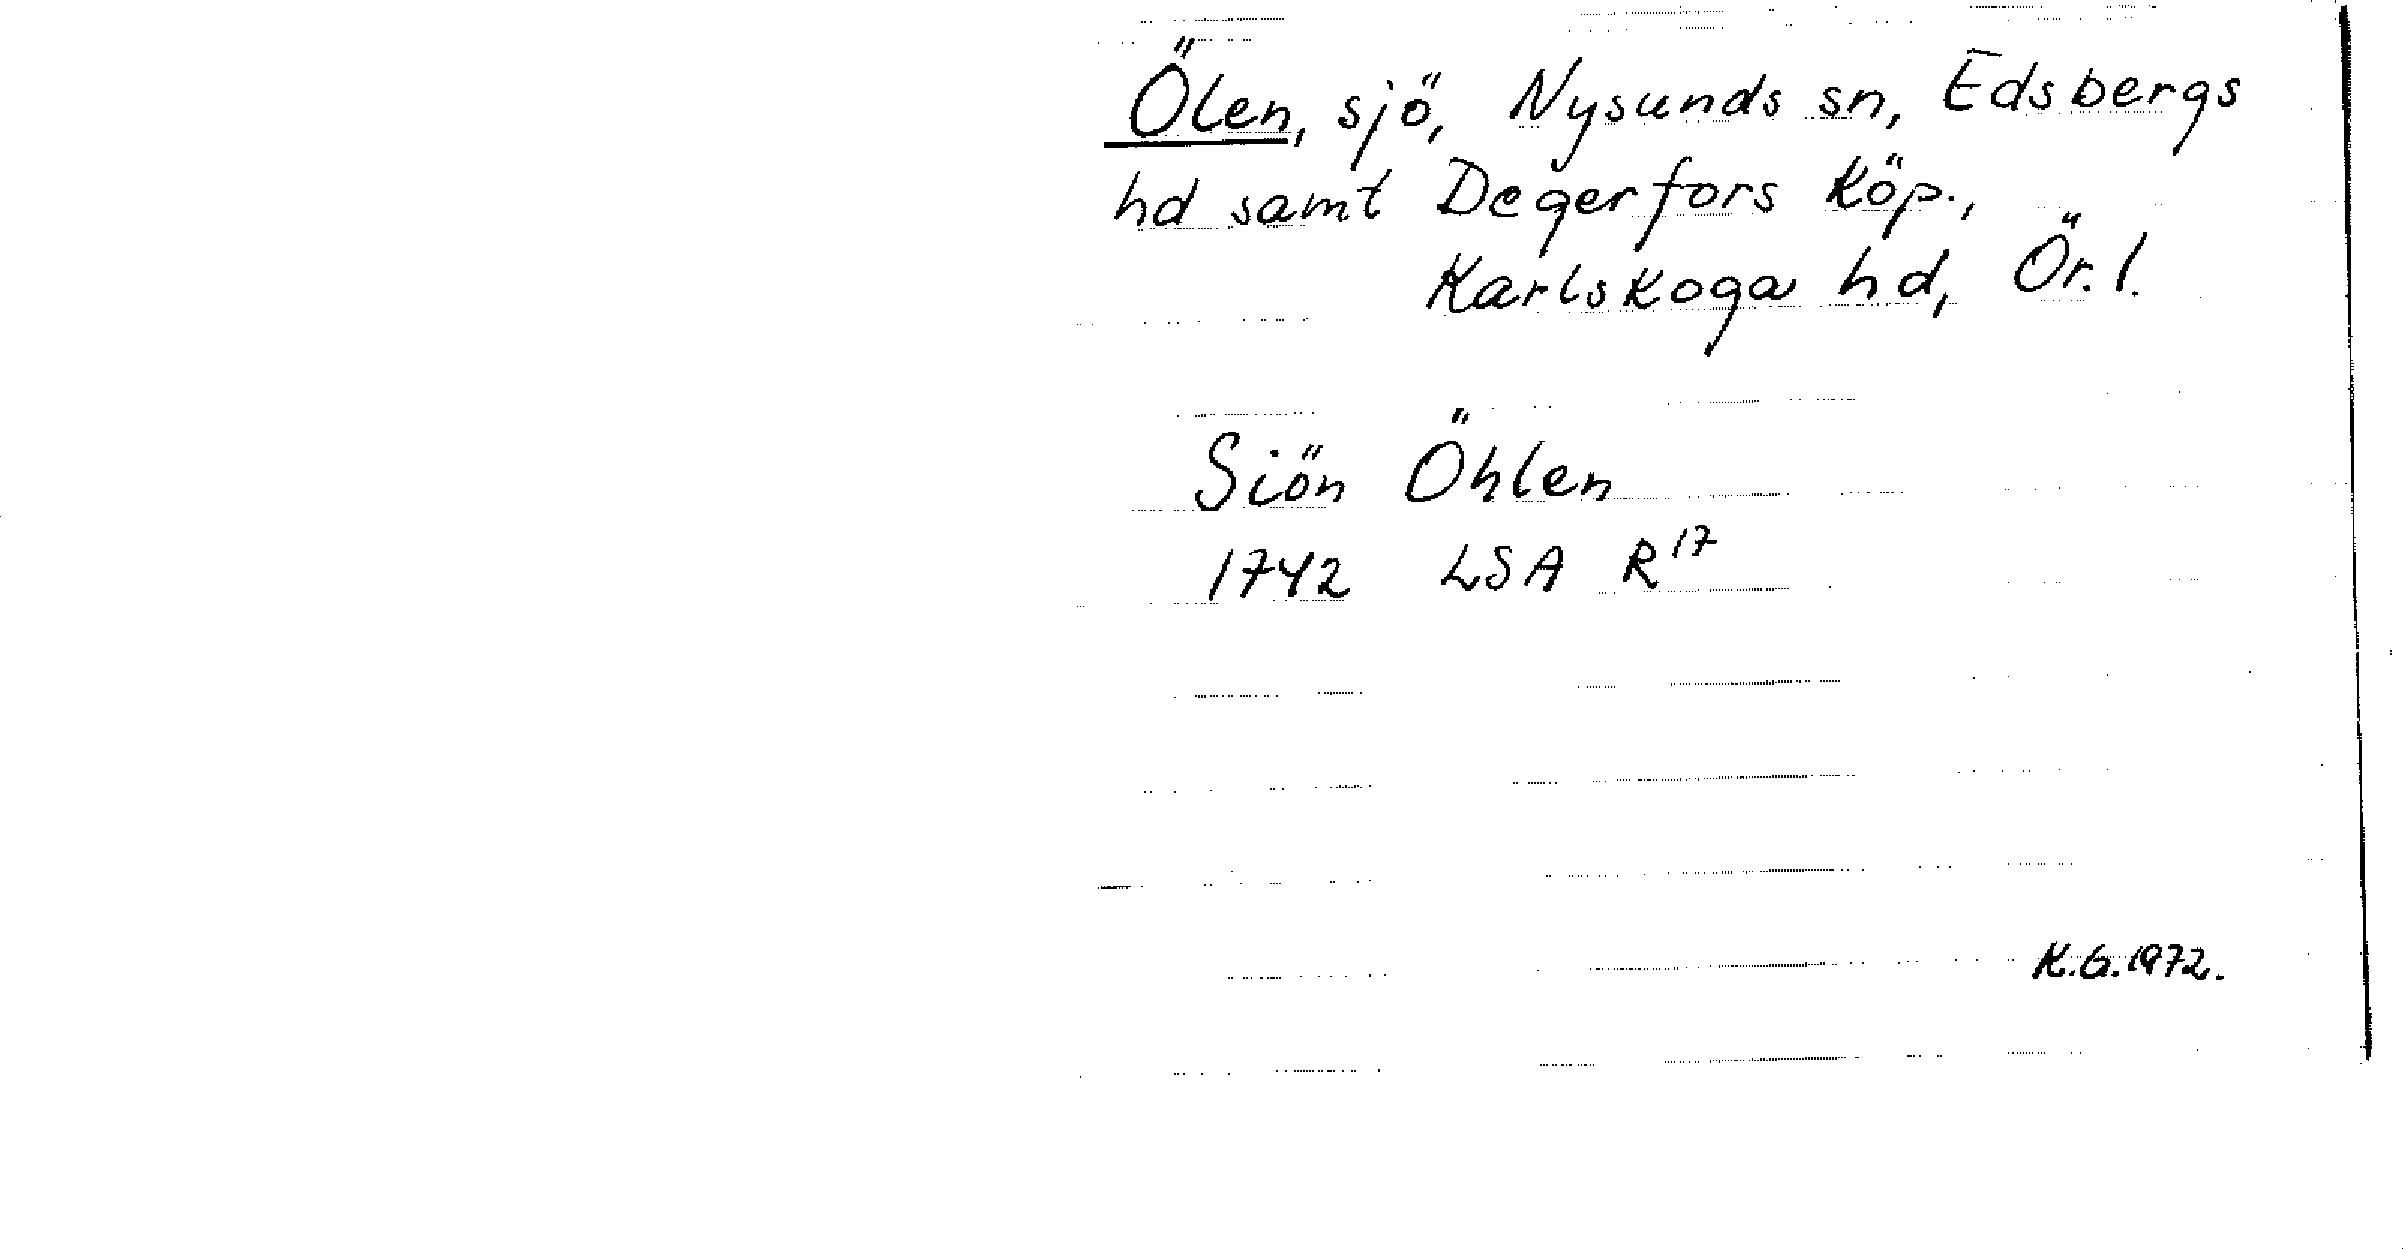 Ölen, sjö, Nysunds sn, Edsbergs
hd samt Degerfors köp.,
Karlskoga hd, Ör. l.
Siön Öhlen
1742 LSA R 17
K.G. 1972.